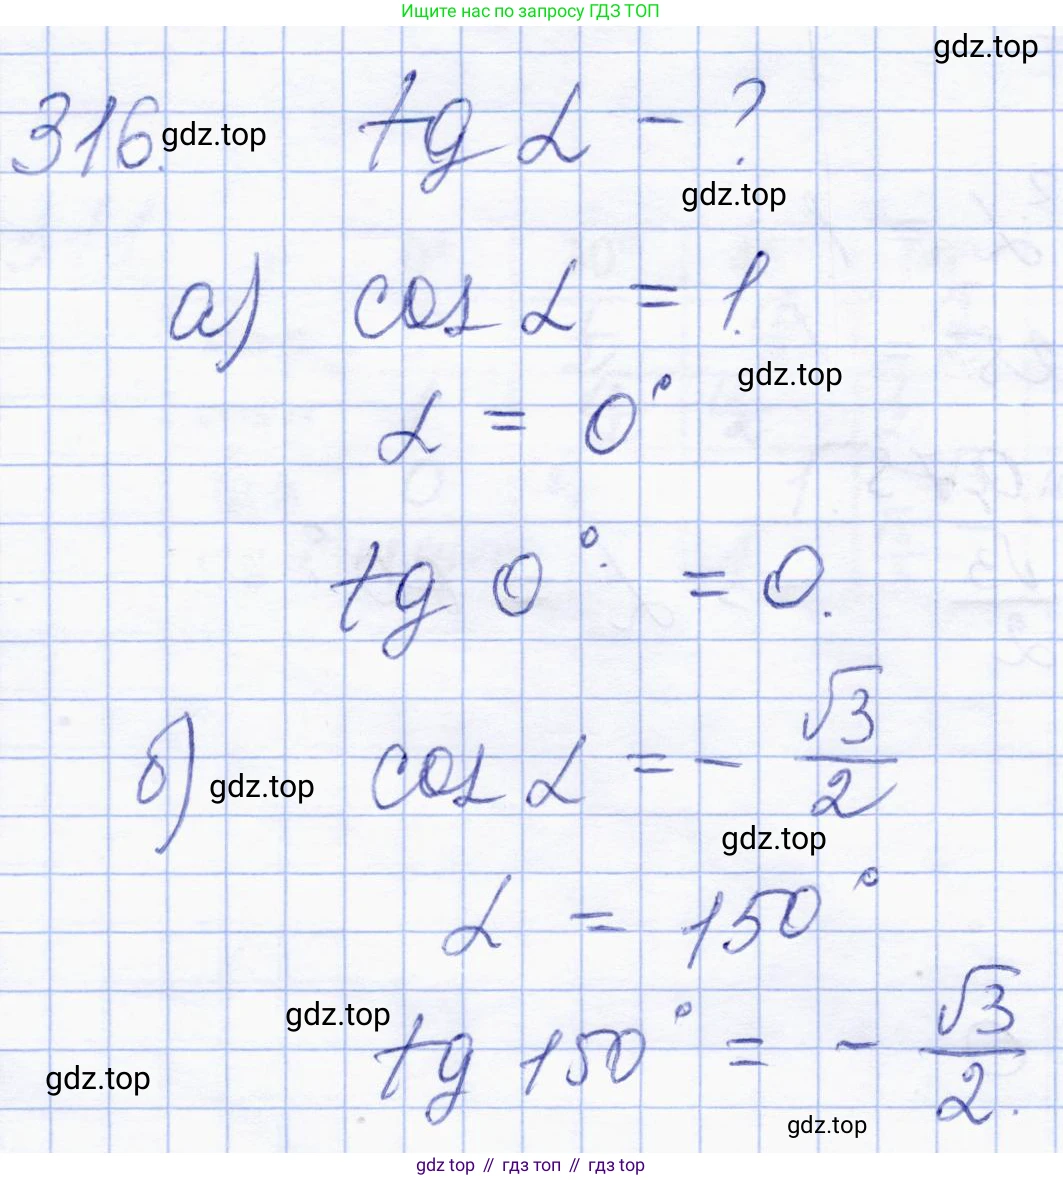 Ищите нас по запросу ГДЗ ТОП
gdz.top
316. gdz.top tg α - ?
gdz.top
а) cos α = 1.
gdz.top
α = 0°
tg 0° = 0.
б) gdz.top cos α = - √3/2
gdz.top
α = 150°
gdz.top
tg 150° = - √3/2.
gdz.top
gdz.top
gdz top // гдз топ // гдз top